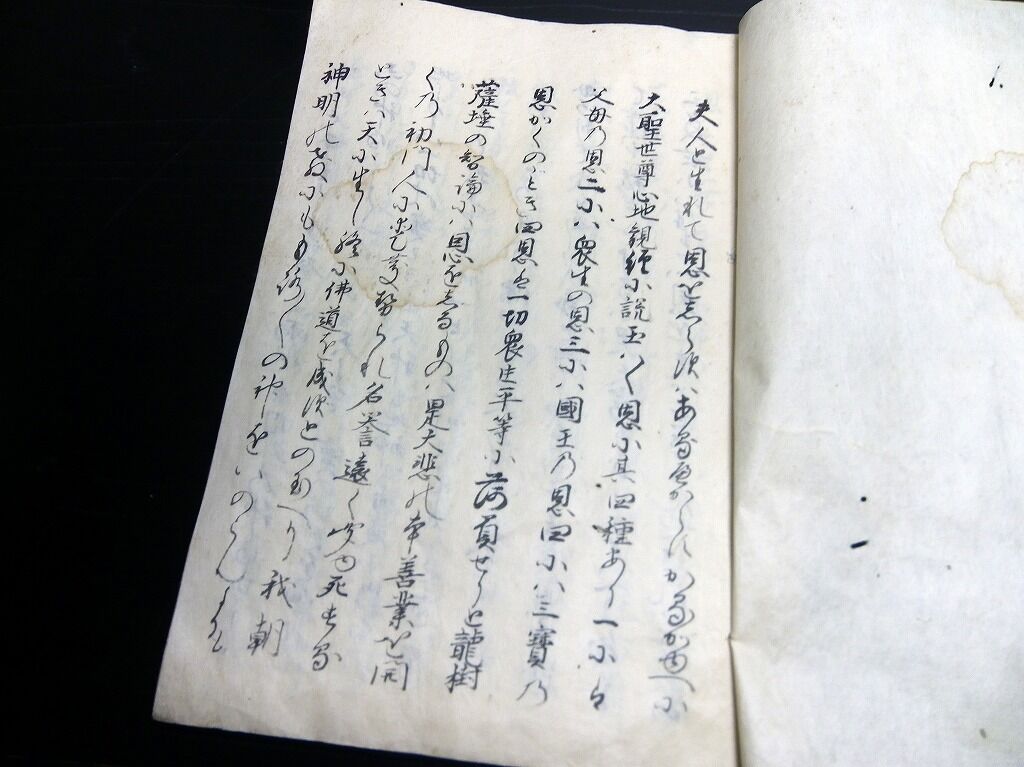 夫人と生れて恩を志らずハあるべからずかるかゆへに
大聖世尊心地観経に説玉ハく恩に其四種あり一にハ
父母乃恩二にハ衆生の恩三にハ國王乃恩四にハ三寶乃
恩かくのごとき四恩は一切衆生平等に荷負せりと龍樹
薩埵の智論にハ恩を志るものハ是大悲の本善業を開
く乃初門人に愛敬せられ名誉遠く聞ゆ死する
ときハ天に生し終に佛道を成ずとのたまへり我朝
神明の教にも の神をいのらんより